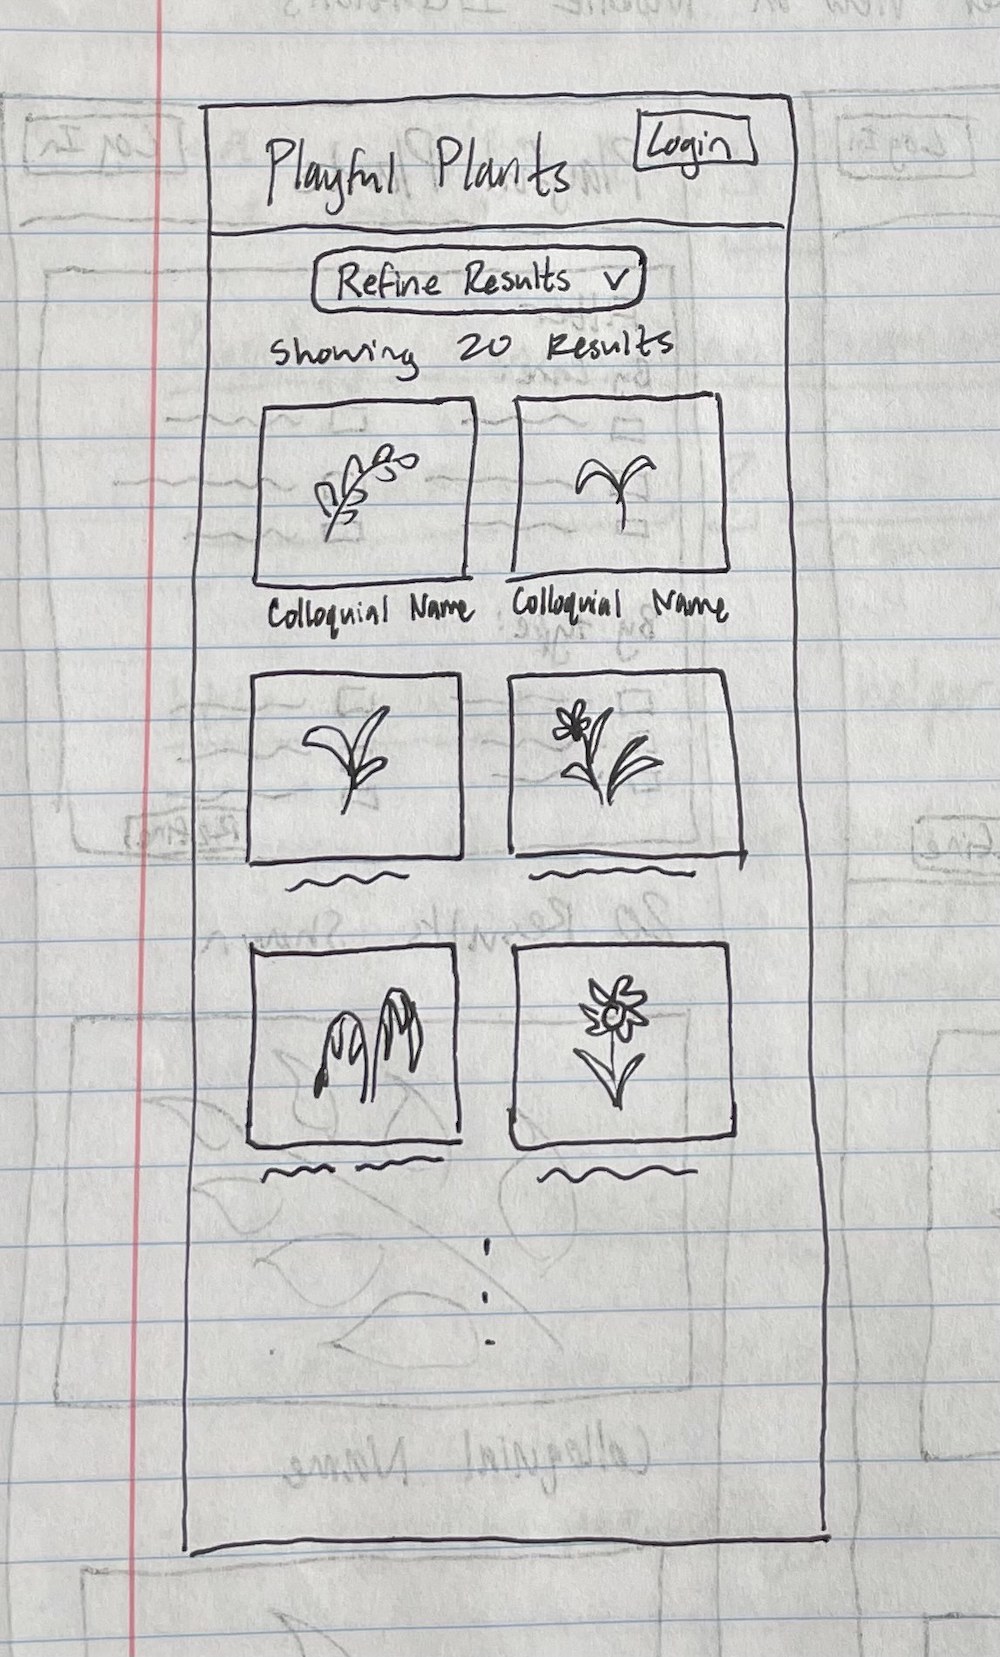 Playful Plants
Login
Refine Results
Showing 20 Results
Colloquial Name Colloquial Name